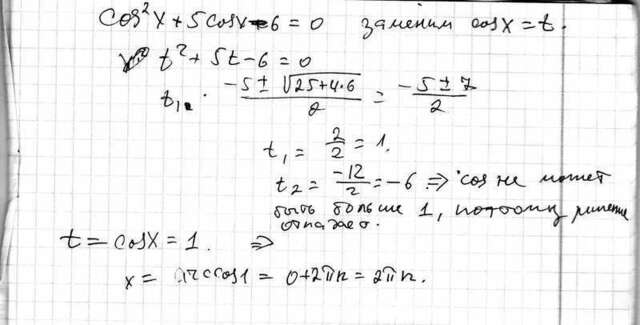 cos²x + 5cosx - 6 = 0 заменим cosx = t.
t² + 5t - 6 = 0
t₁,. = (-5 ± √(25+4·6))/2 = (-5 ± 7)/2
t₁ = 2/2 = 1.
t₂ = -12/2 = -6 ⇒ cos не может
быть больше 1, поэтому решение
отпадает.
t = cosx = 1. ⇒
x = arccos1 = 0+2πn = 2πn.